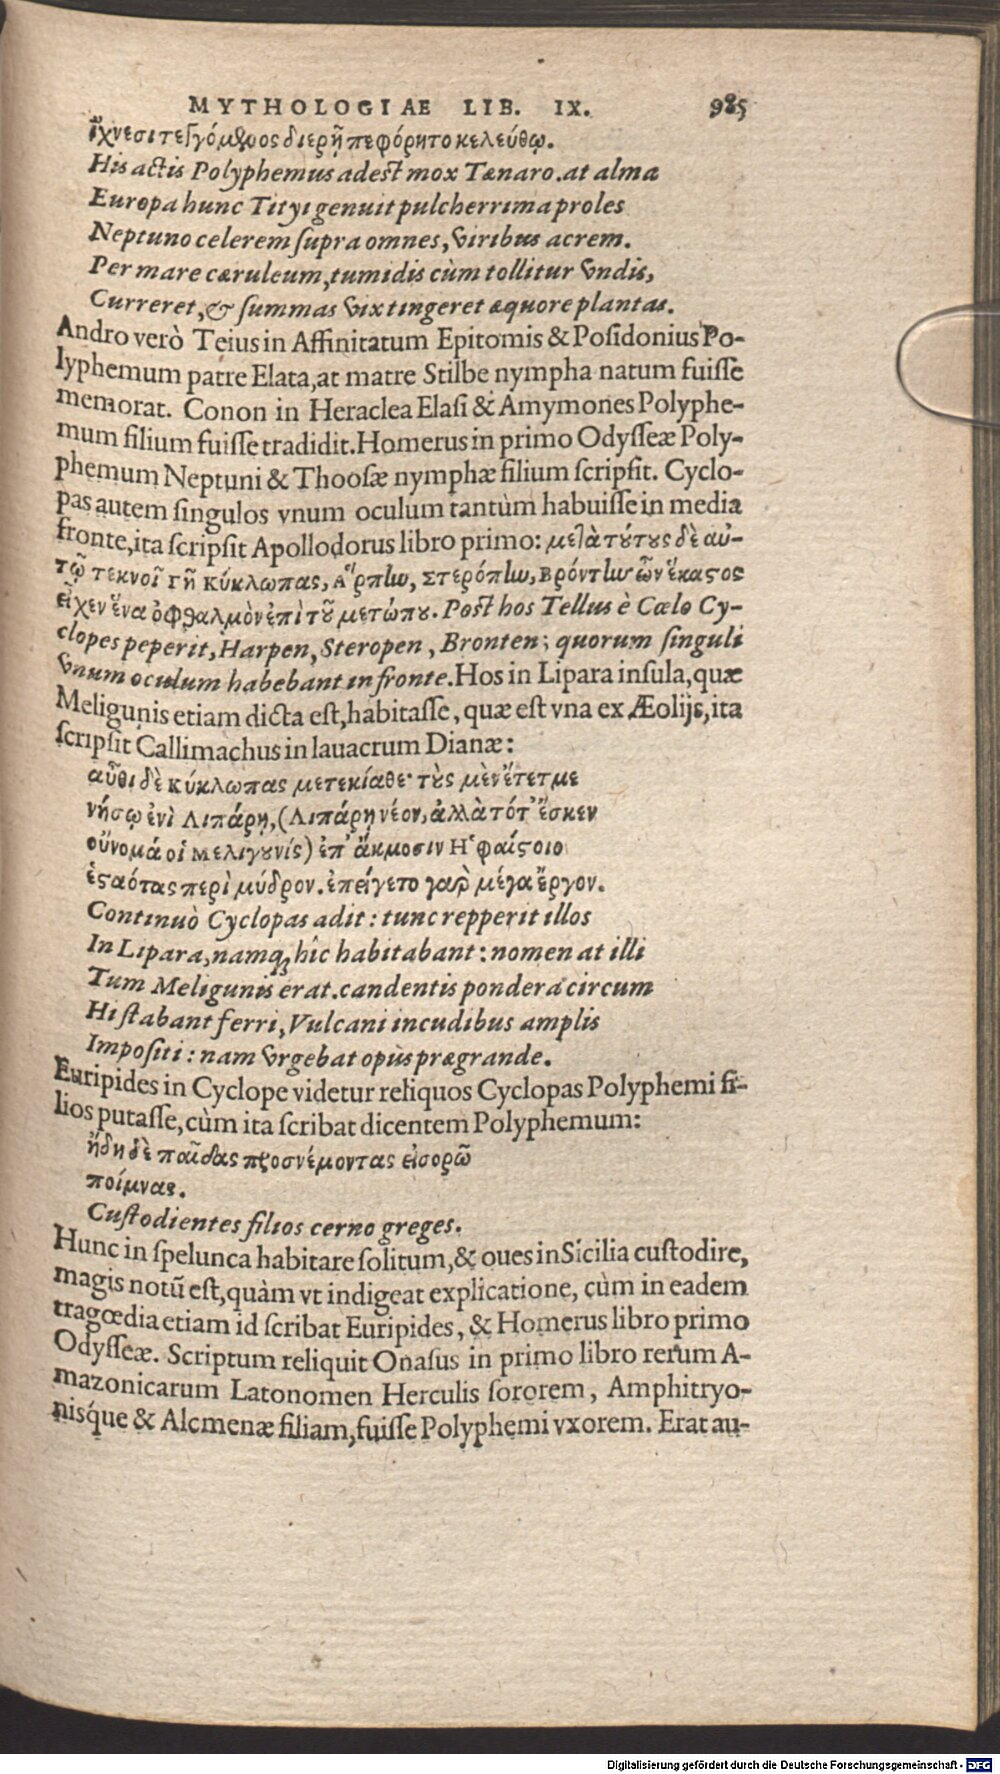 MYTHOLOGIAE LIB. IX. 985
ἴχνεσι τεγγόμενος διερῇ πεφόρητο κελεύθῳ.
His actis Polyphemus adest mox Tænaro. at alma
Europa hunc Tityi genuit pulcherrima proles
Neptuno celerem supra omnes, viribus acrem.
Per mare cæruleum, tumidis cùm tollitur vndis,
Curreret, & summas vix tingeret æquore plantas.
Andro verò Teius in Affinitatum Epitomis & Posidonius Po-
lyphemum patre Elata, at matre Stilbe nympha natum fuisse
memorat. Conon in Heraclea Elasi & Amymones Polyphe-
mum filium fuisse tradidit. Homerus in primo Odysseæ Poly-
phemum Neptuni & Thoosæ nymphæ filium scripsit. Cyclo-
pas autem singulos vnum oculum tantùm habuisse in media
fronte, ita scripsit Apollodorus libro primo: μετὰ τούτους δὲ αὐ-
τῷ τεκνοῖ γῆ κύκλωπας, Ἅρπην, Στερόπην, Βρόντην ὧν ἕκαστος
εἶχεν ἕνα ὀφθαλμὸν ἐπὶ τοῦ μετώπου. Post hos Tellus è Cœlo Cy-
clopes peperit, Harpen, Steropen, Bronten; quorum singuli
vnum oculum habebant in fronte. Hos in Lipara insula, quæ
Meligunis etiam dicta est, habitasse, quæ est vna ex Æolijs, ita
scripsit Callimachus in lauacrum Dianæ:
αὖθι δὲ κύκλωπας μετεκίαθε· τοὺς μὲν ἔτετμε
νήσῳ ἐνὶ Λιπάρῃ, (Λιπάρη νέον, ἀλλὰ τότ' ἔσκεν
οὔνομά οἱ Μελιγουνίς) ἐπ' ἄκμοσιν Ἡφαίστοιο
ἑσταότας περὶ μύδρον. ἐπείγετο γὰρ μέγα ἔργον.
Continuò Cyclopas adit: tunc repperit illos
In Lipara, namq; hîc habitabant: nomen at illi
Tum Meligunis erat. candentis pondera circum
Hi stabant ferri, Vulcani incudibus amplis
Impositi: nam vrgebat opùs prægrande.
Euripides in Cyclope videtur reliquos Cyclopas Polyphemi fi-
lios putasse, cùm ita scribat dicentem Polyphemum:
ἤδη δὲ παῖδας προσνέμοντας εἰσορῶ
ποίμνας.
Custodientes filios cerno greges.
Hunc in spelunca habitare solitum, & oues in Sicilia custodire,
magis notū est, quàm vt indigeat explicatione, cùm in eadem
tragœdia etiam id scribat Euripides, & Homerus libro primo
Odysseæ. Scriptum reliquit Onasus in primo libro rerum A-
mazonicarum Latonomen Herculis sororem, Amphitryo-
nisque & Alcmenæ filiam, fuisse Polyphemi vxorem. Erat au-
Digitalisierung gefördert durch die Deutsche Forschungsgemeinschaft - DFG